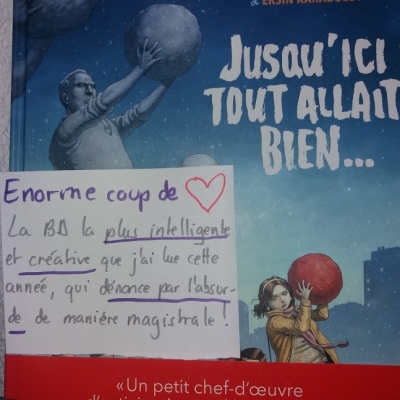 d'ERSIN KARABULUT
JUSQU'ICI
TOUT ALLAIT
BIEN...
Enorme coup de
La BD la plus intelligente
et créative que j'ai lue cette
année, qui dénonce par l'absur-
de de manière magistrale !
« Un petit chef-d'œuvre